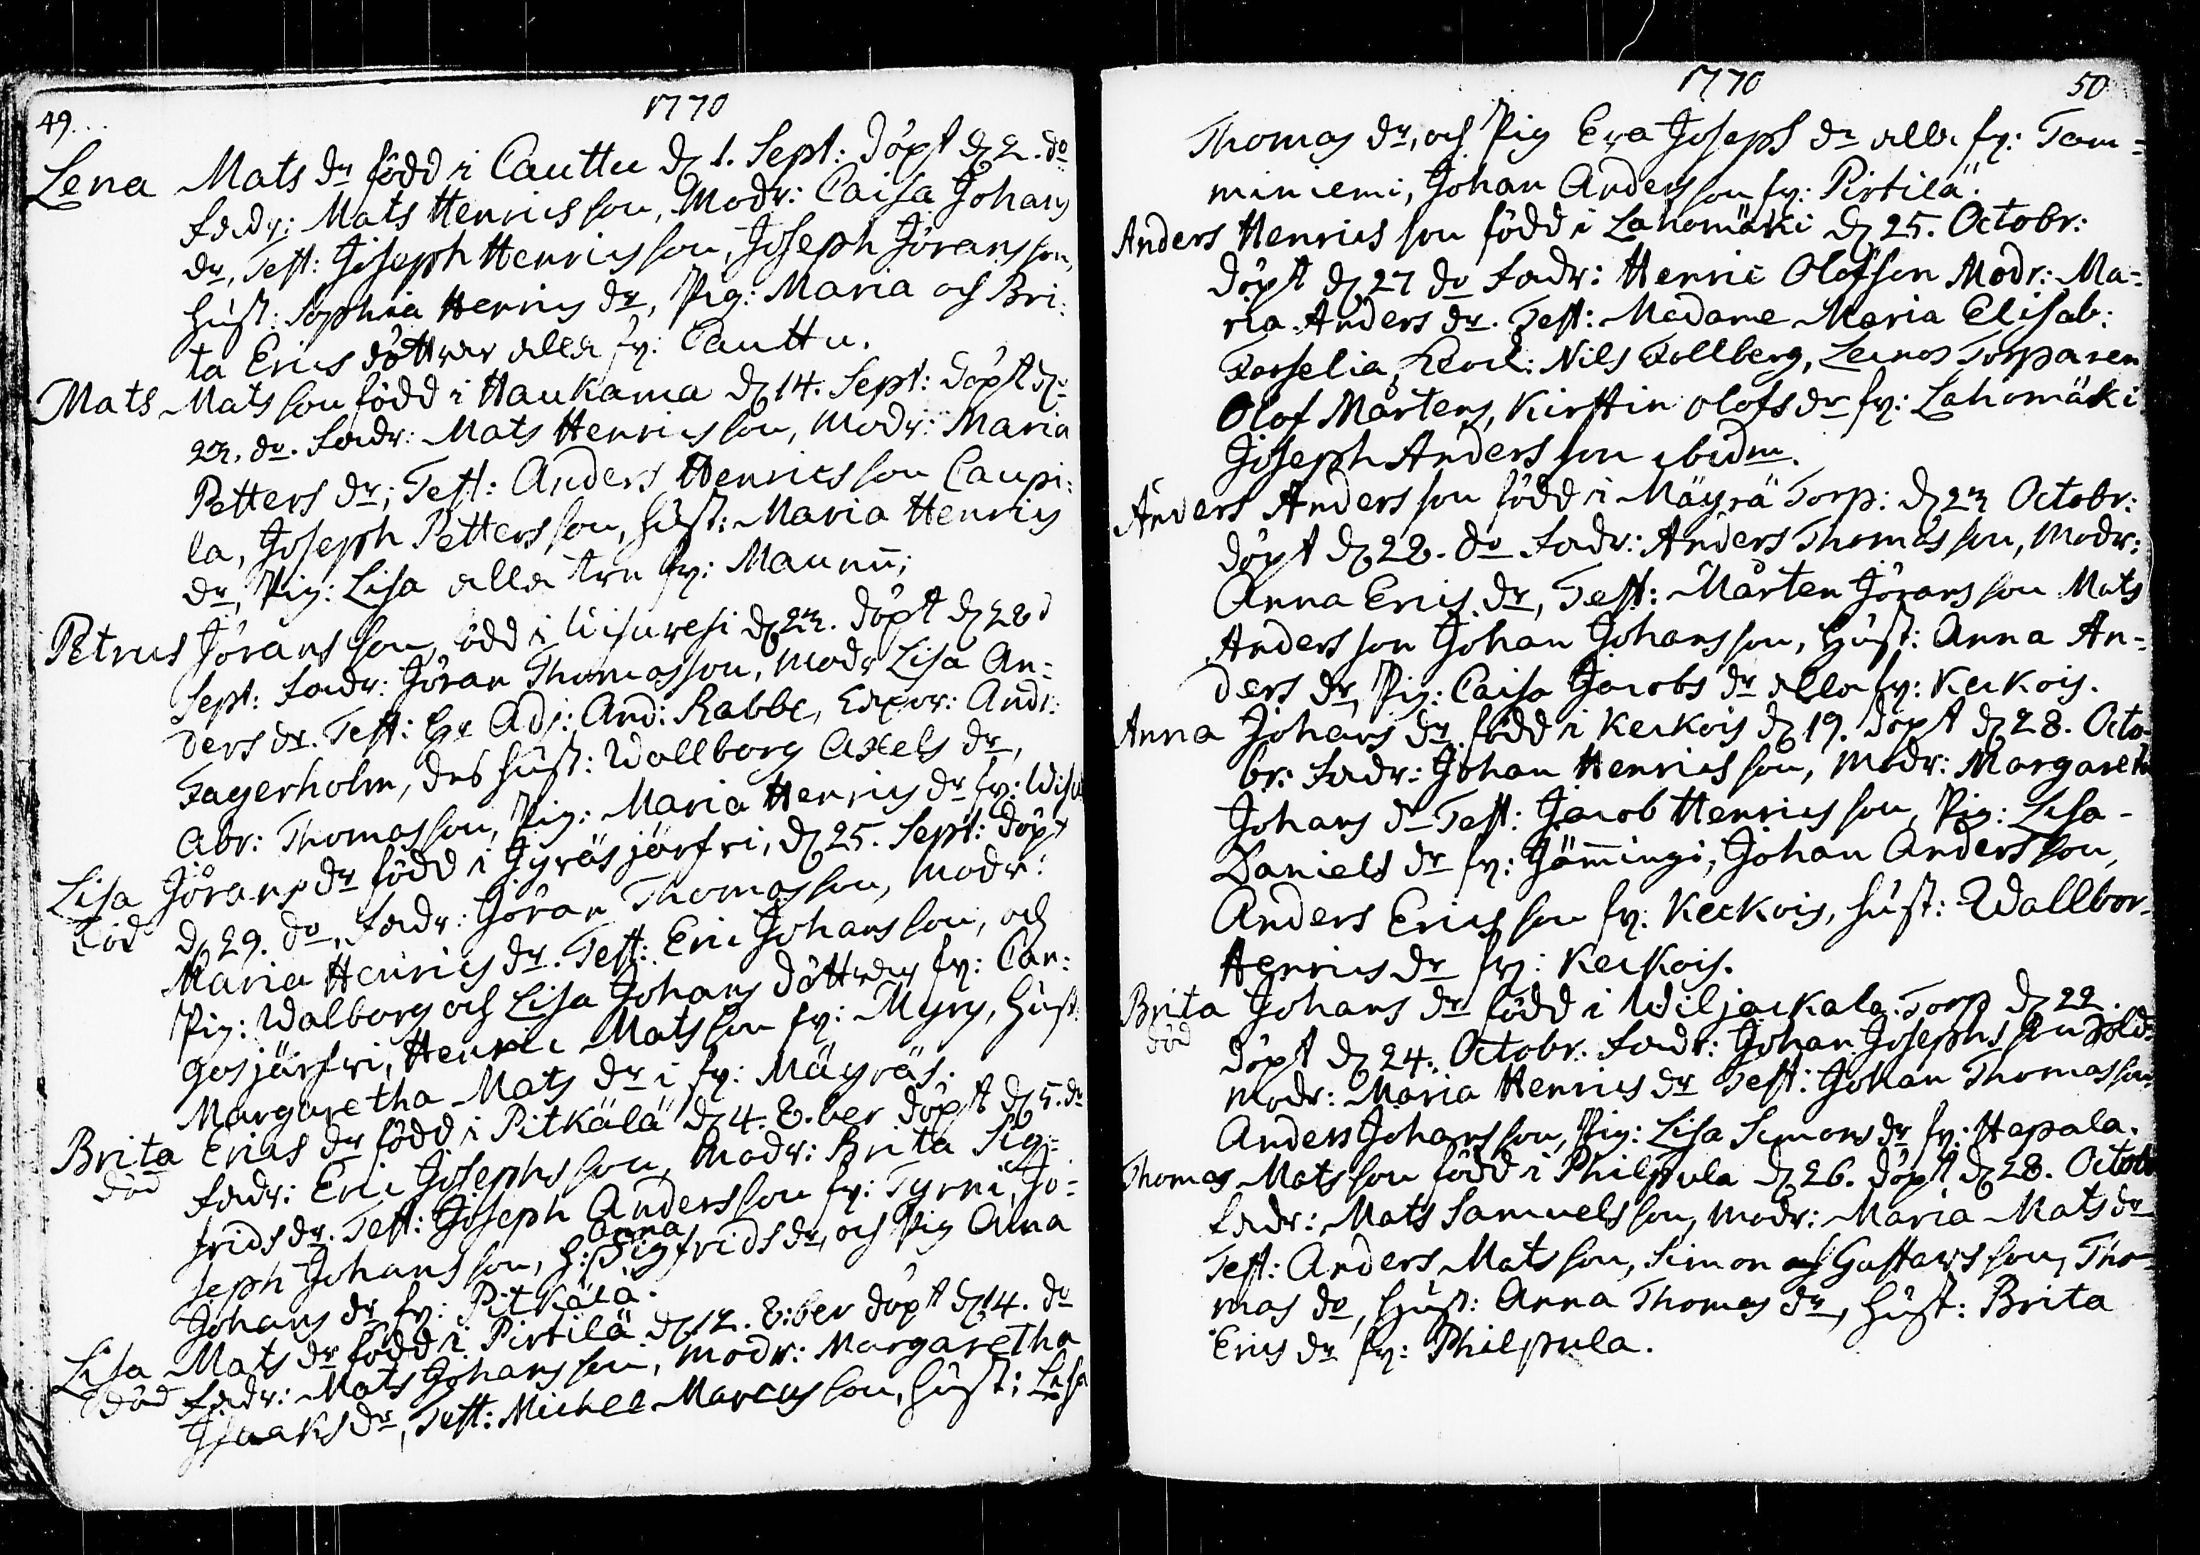 49...
1770
Lena Mats dr född i Cauttu d 1. Sept: döpt d 2. do
Fadr: Mats Henricsson, Modr: Caisa Johans
dr, Test: Joseph Henricsson, Joseph Jöransson,
hust: Sophia Henrics dr, Pig: Maria och Bri:
ta Erics döttrar alla fr: Cauttu.
Mats Matsson född i Haukama d 14. Sept: döpt d:
23. do. Fadr: Mats Henricsson, Modr: Maria
Petters dr; Test: Anders Henricsson Caupi:
la, Joseph Pettersson, hust: Maria Henrics
dr, Pig: Lisa alla fr: Maunu;
Petrus Jöransson, född i Wisuvesi d 23. döpt d 28 d
Sept: Fadr: Jöran Thomasson, Modr Lisa An:
ders dr. Test: Hr Adj: And: Rabbe, And:
Fagerholm, des hust: Wallborg Axels dr,
Abr: Thomasson, Pig: Maria Henrics dr fr: Wisu
Lisa Jörans dr född i Jyräsjärfvi, d 25. Sept: döpt
död d 29. do, Fadr: Jöran Thomasson, Modr:
Maria Henrics dr. Test: Eric Johansson, och
Pig: Walborg och Lisa Johans döttrar fr: Can:
gasjärfvi, Henric Matsson fr: Myry, hust:
Margaretha Mats dr i fr: Mäyräs.
Brita Erics dr född i Pitkälä d 4. 8.ber döpt d 5. do
död Fadr: Eric Josephsson, Modr: Brita Sig:
frids dr. Test: Joseph Andersson fr: Tyrni, Jo:
seph Johansson, h: Anna Sigfrids dr, och Pig Anna
Johans dr fr: Pitkälä.
Lisa Mats dr född i Pirtilä d 12. 8:ber döpt d 14. do
död Fadr: Mats Johansson, Modr: Margaretha
Isaaks dr, Test: Michel Marcusson, hust: Lisa
1770
50
Thomas dr, och Pig Eva Josephs dr alla fr: Tam:
miniemi, Johan Andersson fr: Pirtilä.
Anders Henricsson född i Lahomäki d 25. Octobr:
döpt d 27 do Fadr: Henric Olofson Modr: Ma:
ria Anders dr. Test: Madame Maria Elisab:
Forselia, Nils Follberg, Torparen
Olof Mårtens, Kirstin Olofs dr fr: Lahomäki
Joseph Andersson ibidm.
Anders Andersson född i Mäyrä Torp: d 23 Octobr:
döpt d 28. do Fadr: Anders Thomasson, Modr:
Anna Erics dr, Test: Mårten Jöransson Mats
Andersson Johan Johansson, hust: Anna An:
ders dr, Pig: Caisa Jacobs dr alla fr: Keikois.
Anna Johans dr född i Keikois d 19. döpt d 28. Octo:
br: Fadr: Johan Henricsson, Modr: Margareth
Johans dr Test: Jacob Henricsson, Pig: Lisa
Daniels dr fr: Jämingi, Johan Andersson,
Anders Ericsson fr: Keikois, hust: Wallbor:
Henrics dr fr: Keikois.
Brita Johans dr född i Wiljackala Torp d 22.
död döpt d 24. Octobr. Fadr: Johan Josephsson
Modr: Maria Henrics dr Test: Johan Thomasson,
Anders Johansson, Pig: Lisa Simons dr fr: Hapala.
Thomas Matsson född i Philpula d 26. döpt d 28. Octob
Fadr: Mats Samuelsson, Modr: Maria Mats dr
Test: Anders Matsson, Simon Gustavsson, Tho:
mas do, hust: Anna Thomas dr, hust: Brita
Erics dr fr: Philpula.